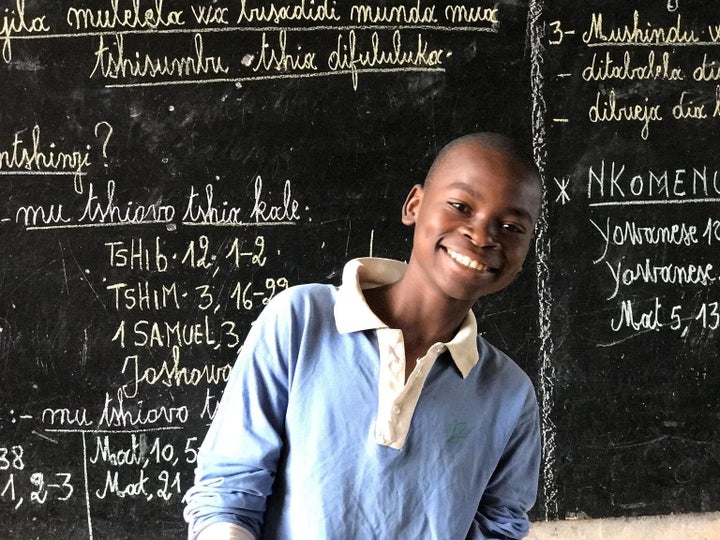 mulelela wa busadidi munda mua
tshisumbu tshia difululuka.
ntshinyi?
- mu tshiovo tshia kale:
TSHIB. 12, 1-2
TSHIM. 3, 16-22
1 SAMUEL, 3
Joshowa
:- mu tshiovo
38 Mat, 10, 5
1, 2-3 Mat, 21,
3- Mushindu
- ditabalela
- dibueja dia
* NKOMENU
Yowanese 12
Yowanese
Mat 5, 13